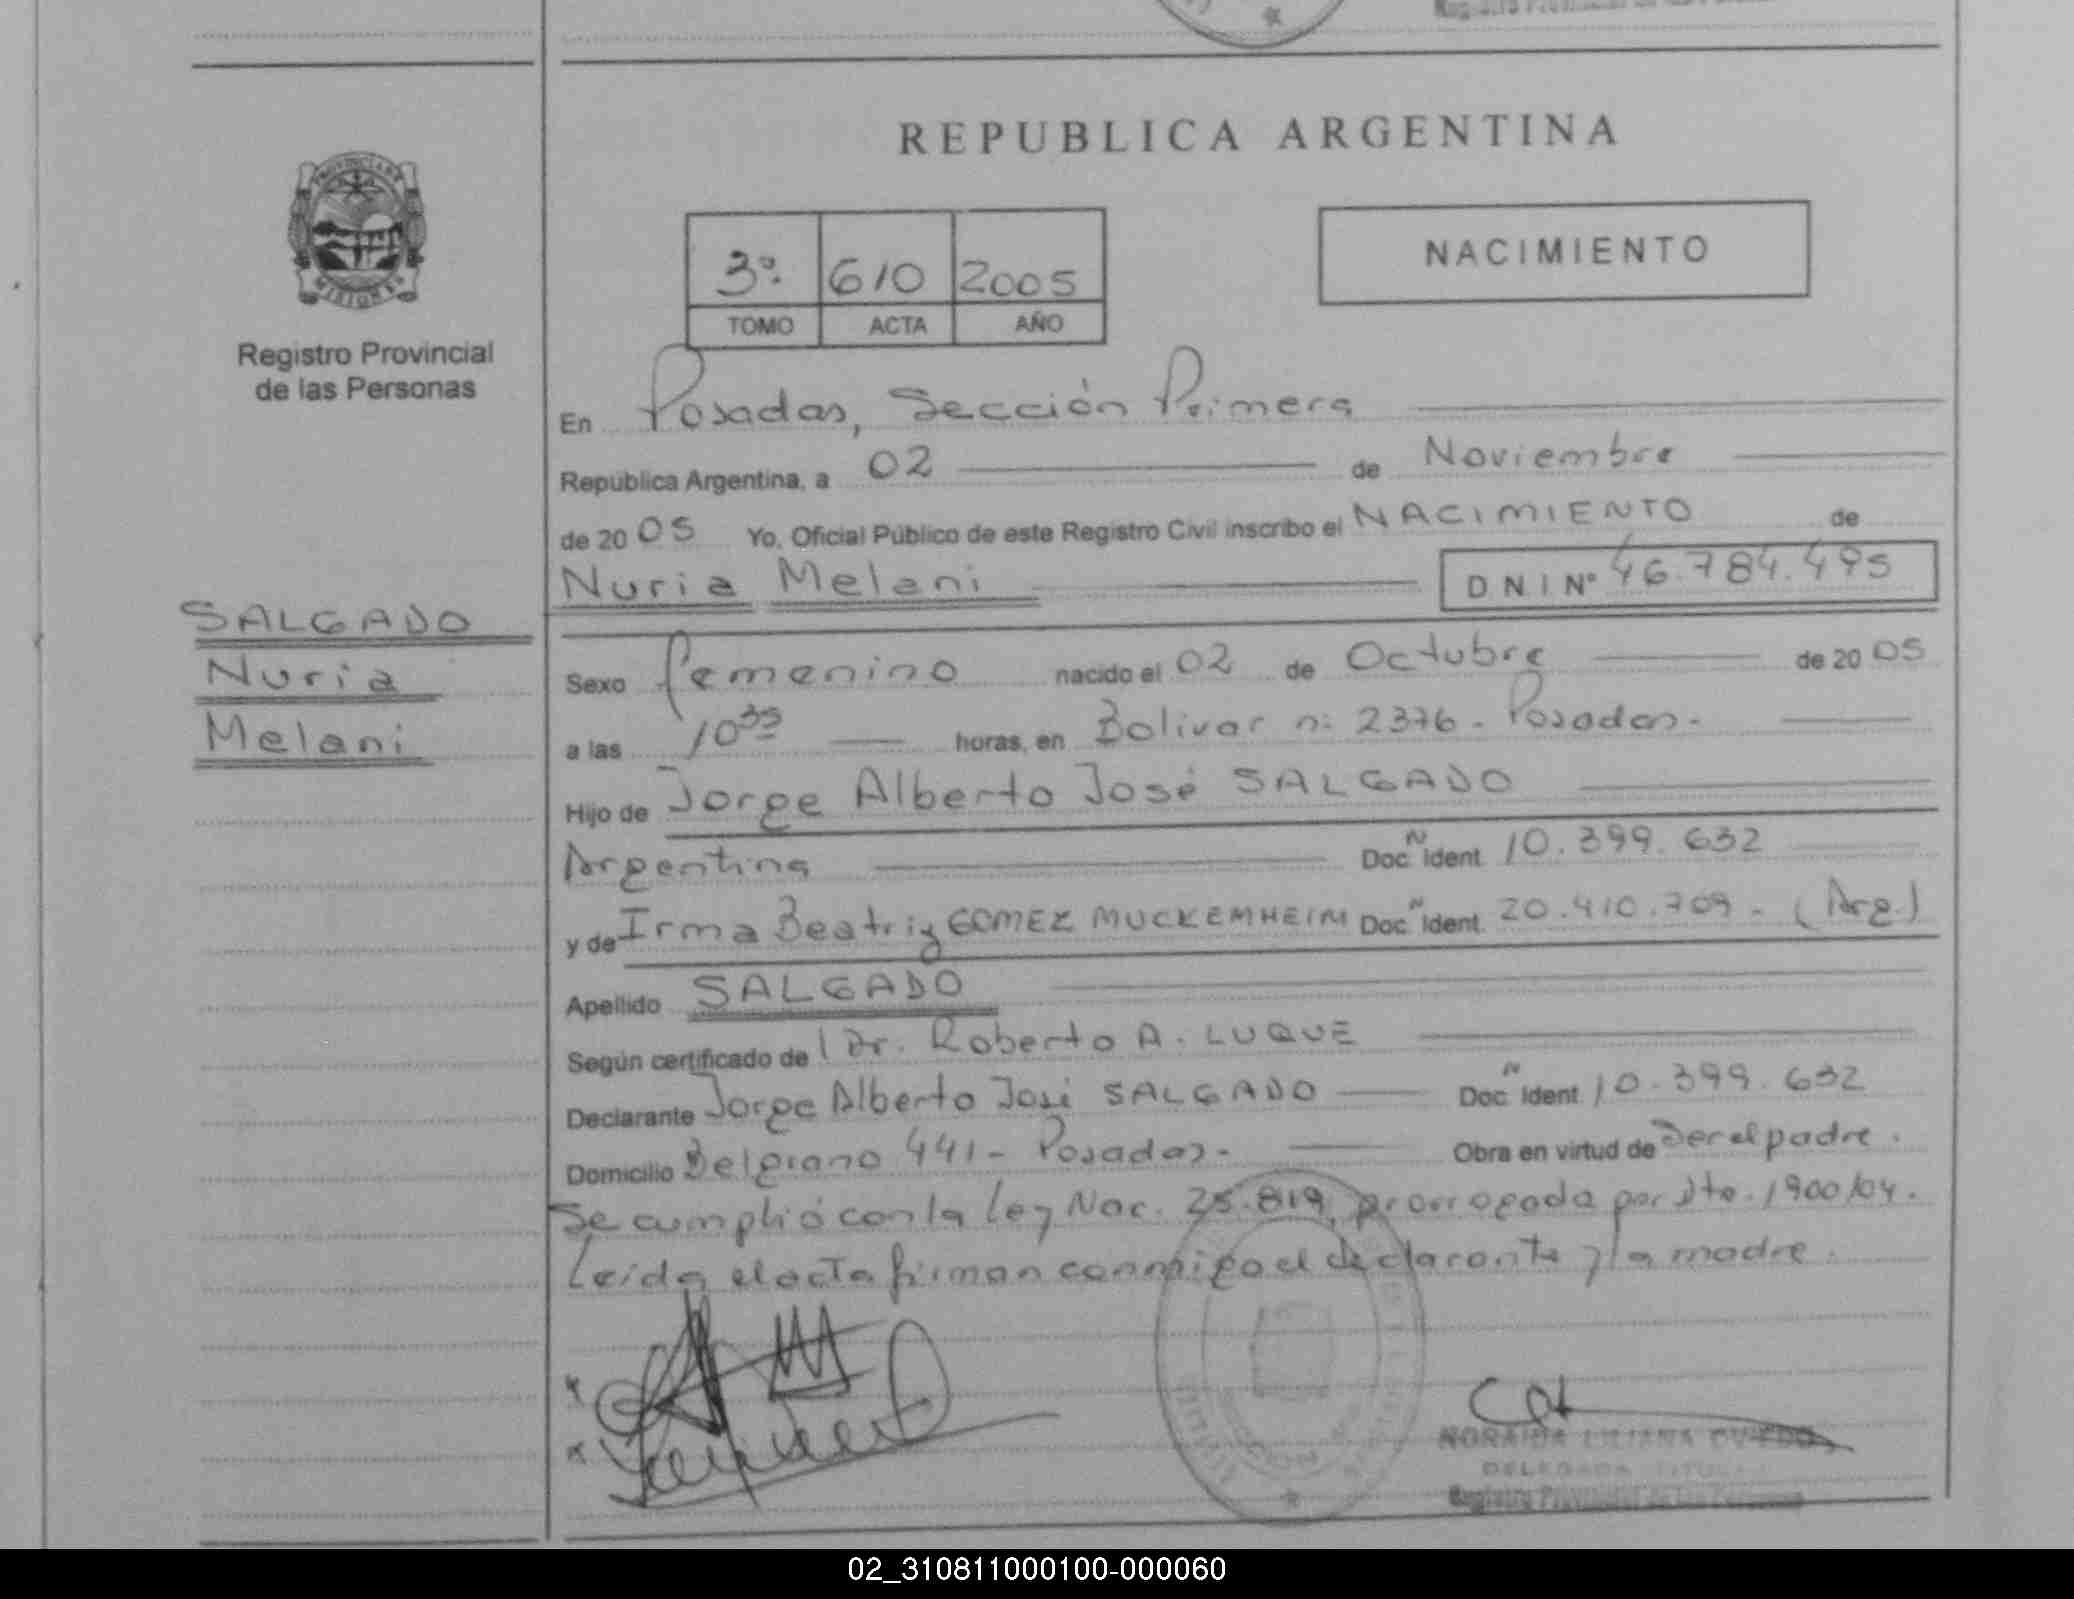 REPUBLICA ARGENTINA
PROVINCIA DE
MISIONES
Registro Provincial
de las Personas
NACIMIENTO
3º 610 2005
TOMO ACTA AÑO
En Posadas, Sección Primera
República Argentina, a 02 de Noviembre
de 20 05 Yo, Oficial Público de este Registro Civil inscribo el NACIMIENTO de
Nuria Melani D N I Nº 46.784.495
SALGADO
Nuria
Melani
Sexo femenino nacido el 02 de Octubre de 20 05
a las 10 35 horas, en Bolivar nº 2376 - Posadas -
Hijo de Jorge Alberto José SALGADO
Argentina Doc. Ident. 10.399.632
y de Irma Beatriz GOMEZ MUCKEMHEIM Doc. Ident. 20.410.709 - (Arg.)
Apellido SALGADO
Según certificado de l Dr. Roberto A. LUQUE
Declarante Jorge Alberto José SALGADO Doc. Ident. 10.399.632
Domicilio Belgrano 441 - Posadas - Obra en virtud de Ser el padre.
Se cumplió con la Ley Nac. 25.819, prorrogada por Dto. 1900/04.
Leída el acta firman conmigo el declarante y la madre.
NORAIDA LILIANA OVIEDO
DELEGADA TITULAR
Registro Provincial de las Personas
02_310811000100-000060